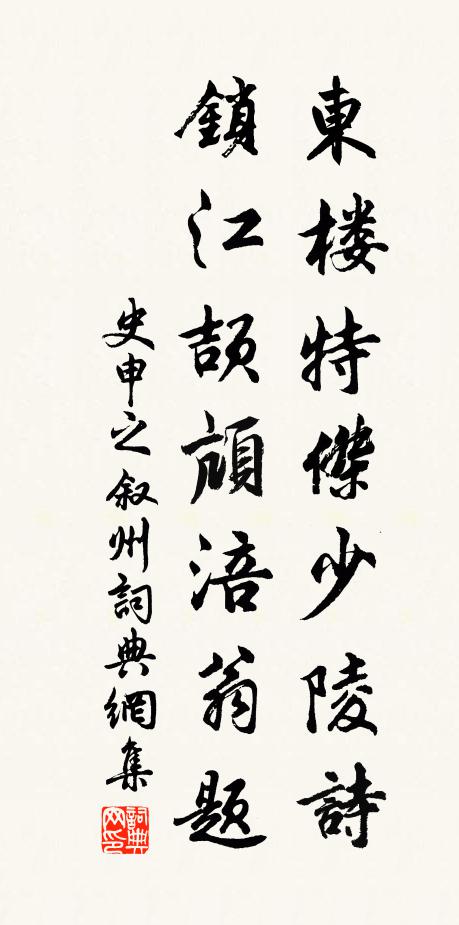 東楼特傑少陵詩
鎖江頡頏涪翁題
史申之叙州詞典網集
詞典网印